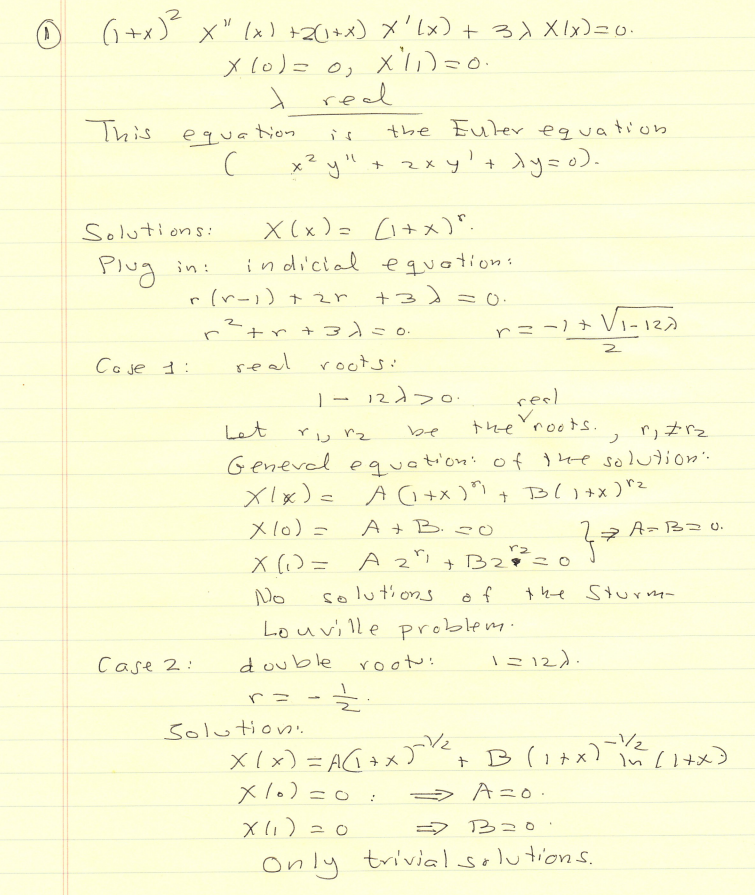 ① (1+x)² X"(x) +2(1+x) X'(x) + 3λ X(x)=0.
X(0)= 0, X'(1)=0.
λ real
This equation is the Euler equation
( x² y" + 2xy' + λy=0).
Solutions: X(x)= (1+x)^r.
Plug in: indicial equation:
r(r-1) + 2r +3λ = 0.
r²+r+3λ=0. r = (-1 + √(1-12λ))/2
Case 1: real roots:
1 - 12λ>0.
Let r₁, r₂ be the real roots., r₁≠r₂
General equation: of the solution:
X(x) = A(1+x)^r₁ + B(1+x)^r₂
X(0) = A + B. =0 } ⇒ A=B=0.
X(1) = A 2^r₁ + B2^r₂ = 0
No solutions of the Sturm-
Louville problem.
Case 2: double root: 1=12λ.
r = -1/2.
Solution:
X(x) = A(1+x)^-1/2 + B (1+x)^-1/2 ln(1+x)
X(0)=0 : ⟹ A=0.
X(1)=0 ⟹ B=0.
Only trivial solutions.